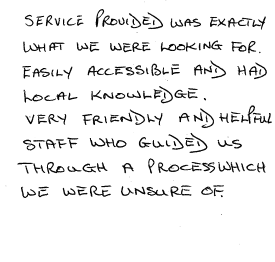 SERVICE PROVIDED WAS EXACTLY
WHAT WE WERE LOOKING FOR.
EASILY ACCESSIBLE AND HAD
LOCAL KNOWLEDGE.
VERY FRIENDLY AND HELPFUL
STAFF WHO GUIDED US
THROUGH A PROCESS WHICH
WE WERE UNSURE OF.